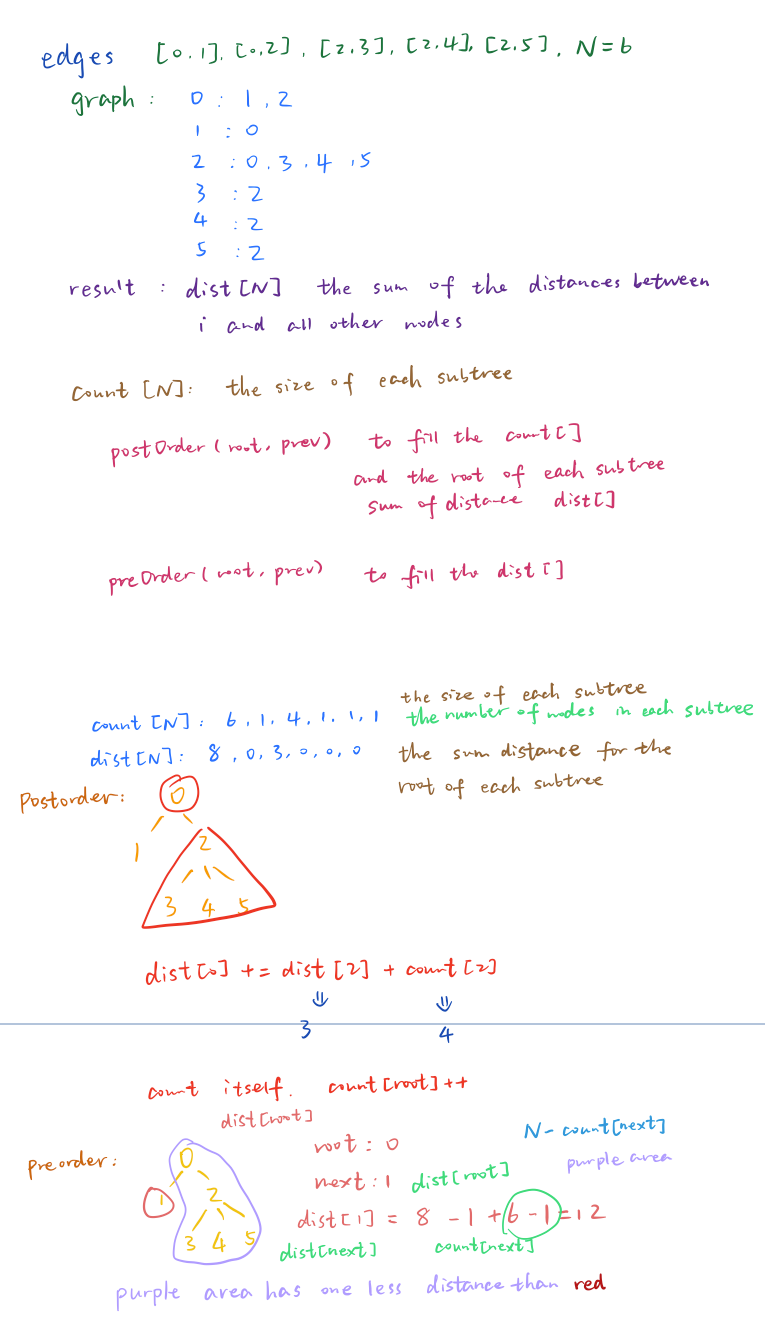 edges [0,1], [0,2], [2,3], [2,4], [2,5], N=6
graph : 0 : 1, 2
1 : 0
2 : 0, 3, 4, 5
3 : 2
4 : 2
5 : 2
result : dist[N] the sum of the distances between
i and all other nodes
Count [N]: the size of each subtree
postOrder(root, prev) to fill the count[]
and the root of each subtree
sum of distance dist[]
preOrder(root, prev) to fill the dist[]
the size of each subtree
count [N]: 6, 1, 4, 1, 1, 1 the number of nodes in each subtree
dist[N]: 8, 0, 3, 0, 0, 0 the sum distance for the
root of each subtree
Postorder: 0
1 2
3 4 5
dist[0] += dist[2] + count[2]
⇓ ⇓
3 4
count itself. count[root]++
dist[root]
root : 0 N - count[next]
Preorder: 0 purple area
next : 1 dist[root]
1 2
dist[1] = 8 - 1 + 6 - 1 = 12
3 4 5 dist[next] count[next]
purple area has one less distance than red